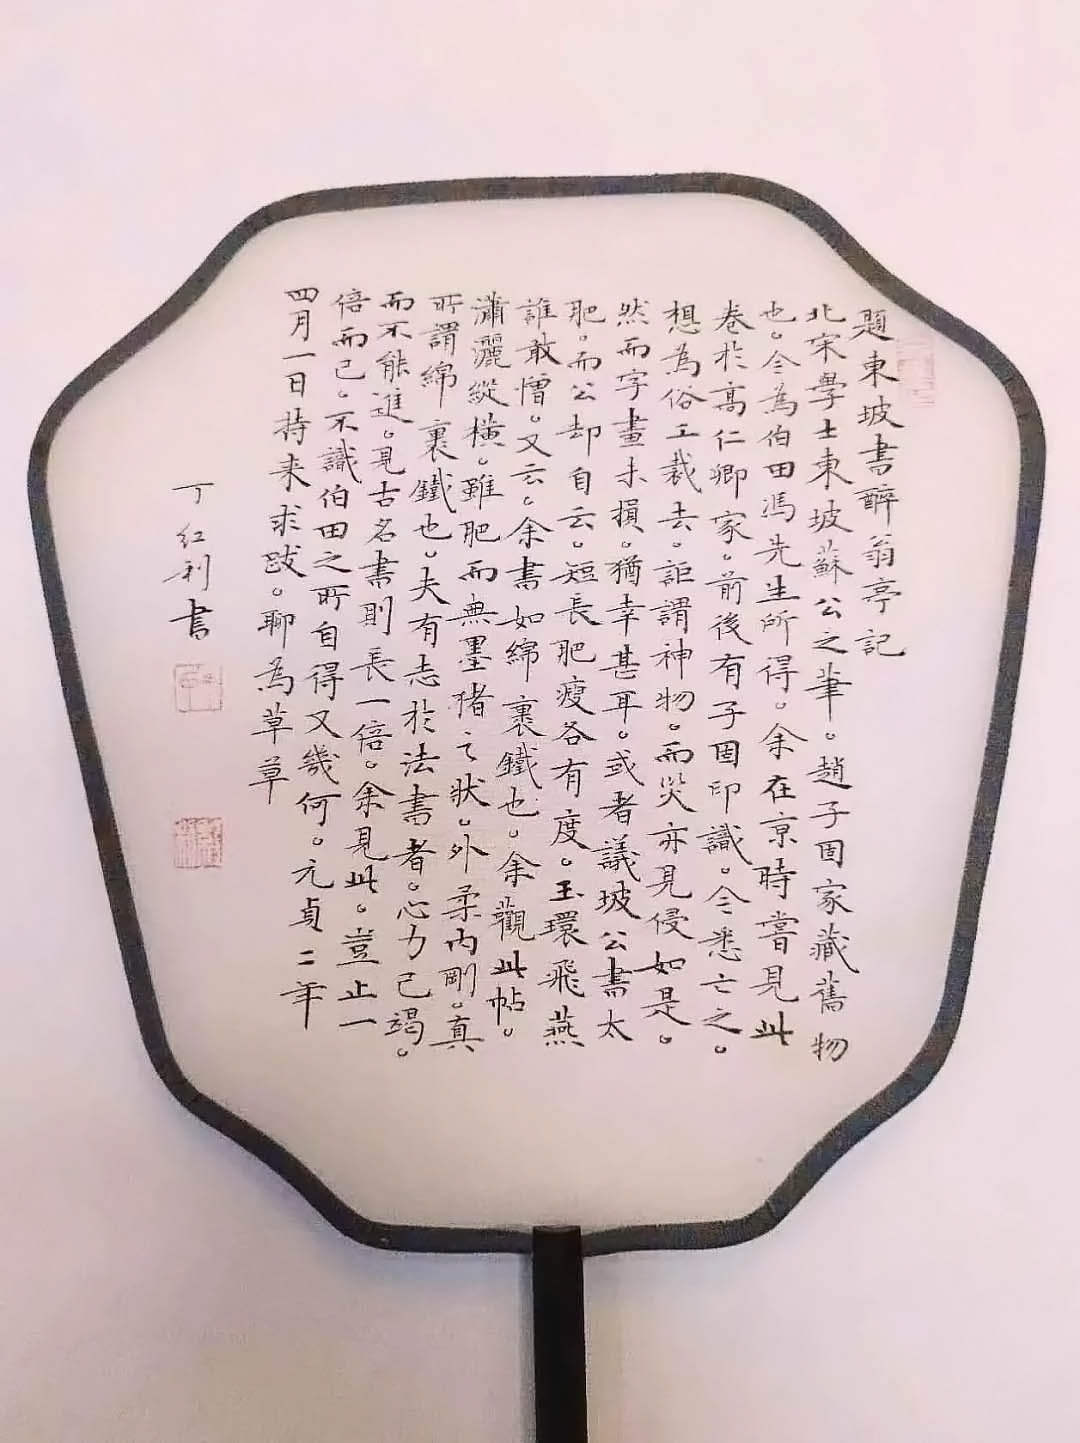 題東坡書醉翁亭記
北宋學士東坡蘇公之筆。趙子固家藏舊物
也。今為伯田馮先生所得。余在京時嘗見此
卷於高仁卿家。前後有子固印識。今悉亡之。
想為俗工裁去。詎謂神物。而災亦見侵如是。
然而字畫未損。猶幸甚耳。或者議坡公書太
肥。而公却自云。短長肥瘦各有度。玉環飛燕
誰敢憎。又云。余書如綿裹鐵也。余觀此帖。
瀟灑縱橫。雖肥而無墨猪之狀。外柔內剛。真
所謂綿裹鐵也。夫有志於法書者。心力已竭。
而不能進。見古名書則長一倍。余見此。豈止一
倍而已。不識伯田之所自得又幾何。元貞二年
四月一日持来求跋。聊為草草
丁红利書